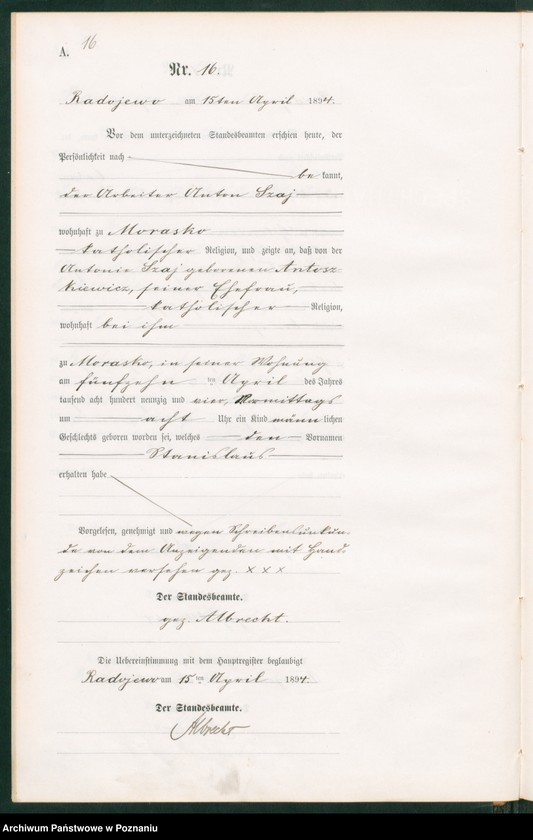 A. 16
Nr. 16.
Radojewo am 15ten April 1894.
Vor dem unterzeichneten Standesbeamten erschien heute, der
Persönlichkeit nach
be kannt,
der Arbeiter Anton Szaj
wohnhaft zu Morasko
katholischer Religion, und zeigte an, daß von der
Antonie Szaj geborenen Antosz
kiewicz, seiner Ehefrau,
katholischer Religion,
wohnhaft bei ihm
zu Morasko, in seiner Wohnung
am fünfzehn ten April des Jahres
tausend acht hundert neunzig und vier, Vormittags
um acht Uhr ein Kind männlichen
Geschlechts geboren worden sei, welches den Vornamen
Stanislaus
erhalten habe
Vorgelesen, genehmigt und wegen Schreibensunkun-
de von dem Anzeigenden mit Hand-
zeichen versehen gez. x x x
Der Standesbeamte.
gez. Albrecht.
Die Uebereinstimmung mit dem Hauptregister beglaubigt
Radojewo am 15 ten April 1894.
Der Standesbeamte.
Albrecht
Archiwum Państwowe w Poznaniu